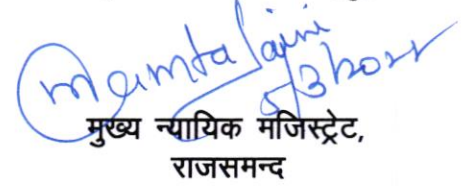 Mamta Saini
5/3/2022
मुख्य न्यायिक मजिस्ट्रेट,
राजसमन्द